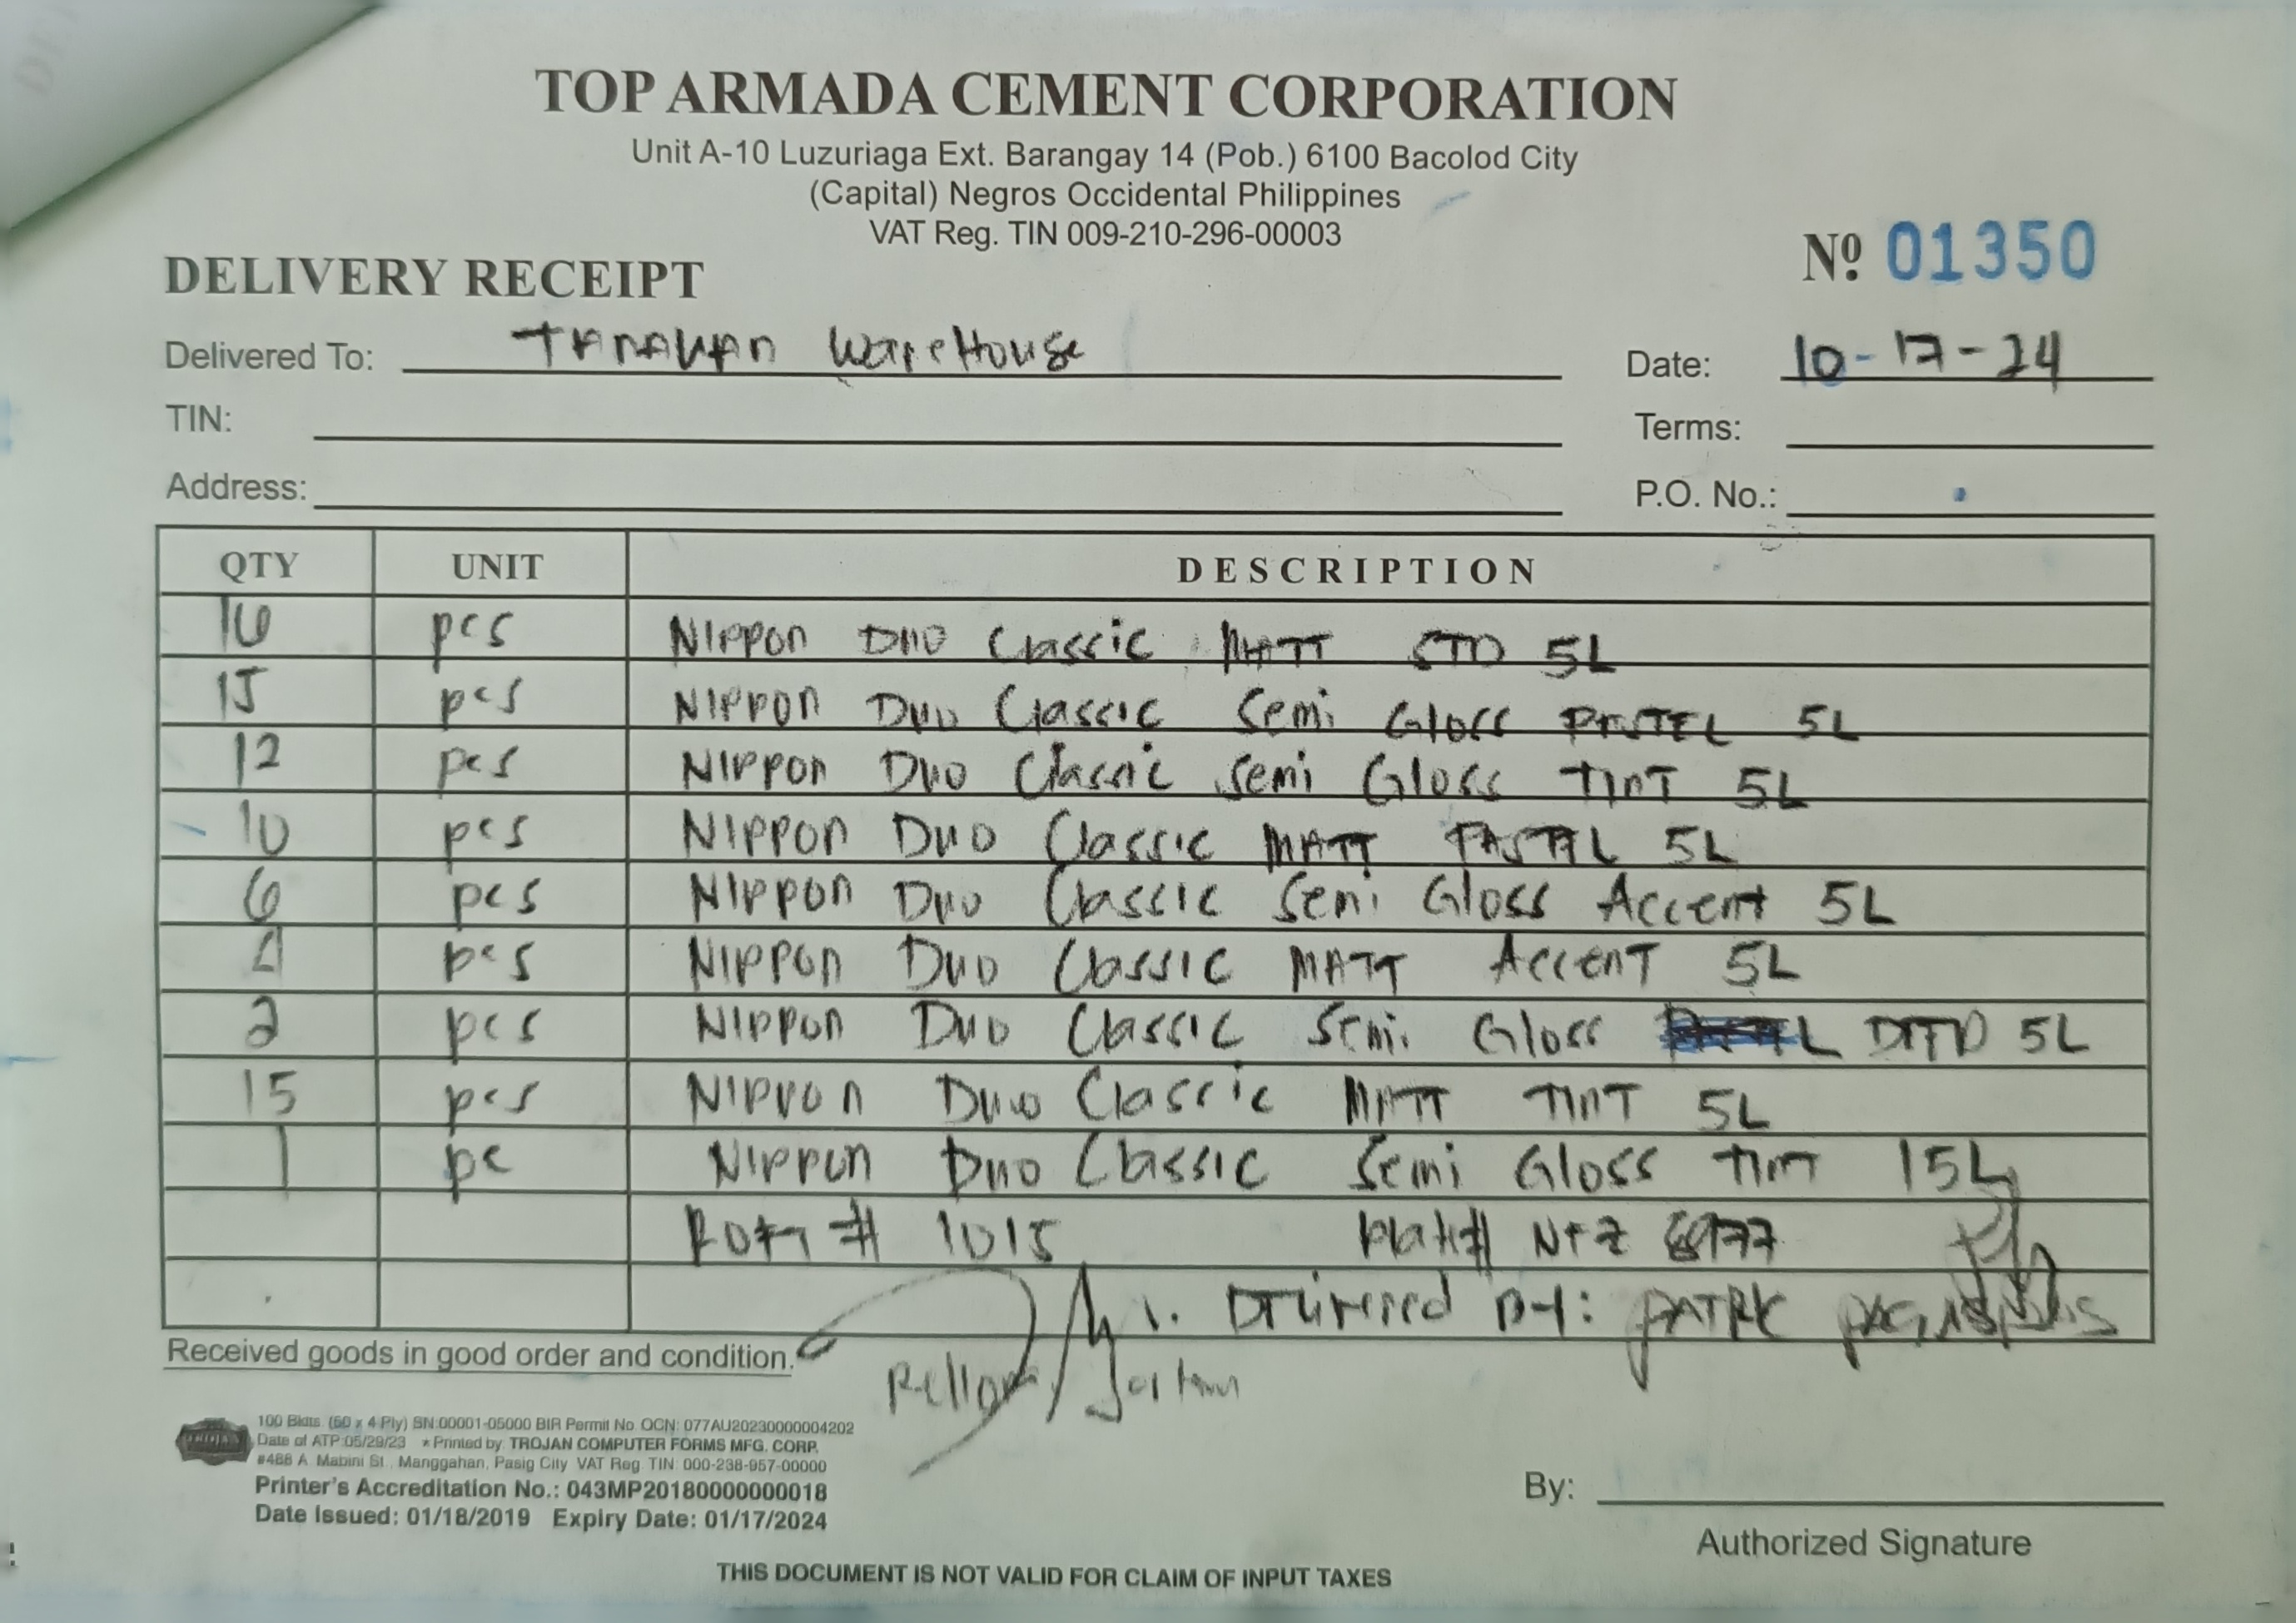 TOP ARMADA CEMENT CORPORATION
Unit A-10 Luzuriaga Ext. Barangay 14 (Pob.) 6100 Bacolod City
(Capital) Negros Occidental Philippines
VAT Reg. TIN 009-210-296-00003
DELIVERY RECEIPT Nº 01350
Delivered To: TANAUAN WareHouse Date: 10-17-24
TIN: Terms:
Address: P.O. No.:
QTY UNIT DESCRIPTION
16 pcs NIPPON DUO Classic MATT STD 5L
15 pcs NIPPON DUO Classic Semi Gloss PASTEL 5L
12 pcs NIPPON DUO Classic Semi Gloss TINT 5L
10 pcs NIPPON DUO Classic MATT PASTEL 5L
6 pcs NIPPON DUO Classic Semi Gloss Accent 5L
4 pcs NIPPON DUO Classic MATT ACCENT 5L
2 pcs NIPPON DUO Classic Semi Gloss 5L
15 pcs NIPPON DUO Classic MATT TINT 5L
1 pc NIPPON DUO Classic Semi Gloss TINT 15L
# 1015 Plate#
Delivered By:
Received goods in good order and condition.
100 Bklts. (50 x 4 Ply) SN:00001-05000 BIR Permit No. OCN: 077AU20230000004202
Date of ATP:05/29/23 * Printed by: TROJAN COMPUTER FORMS MFG. CORP.
#488 A. Mabini St., Manggahan, Pasig City VAT Reg. TIN: 000-238-957-00000
Printer's Accreditation No.: 043MP20180000000018
Date Issued: 01/18/2019 Expiry Date: 01/17/2024
By:
Authorized Signature
THIS DOCUMENT IS NOT VALID FOR CLAIM OF INPUT TAXES